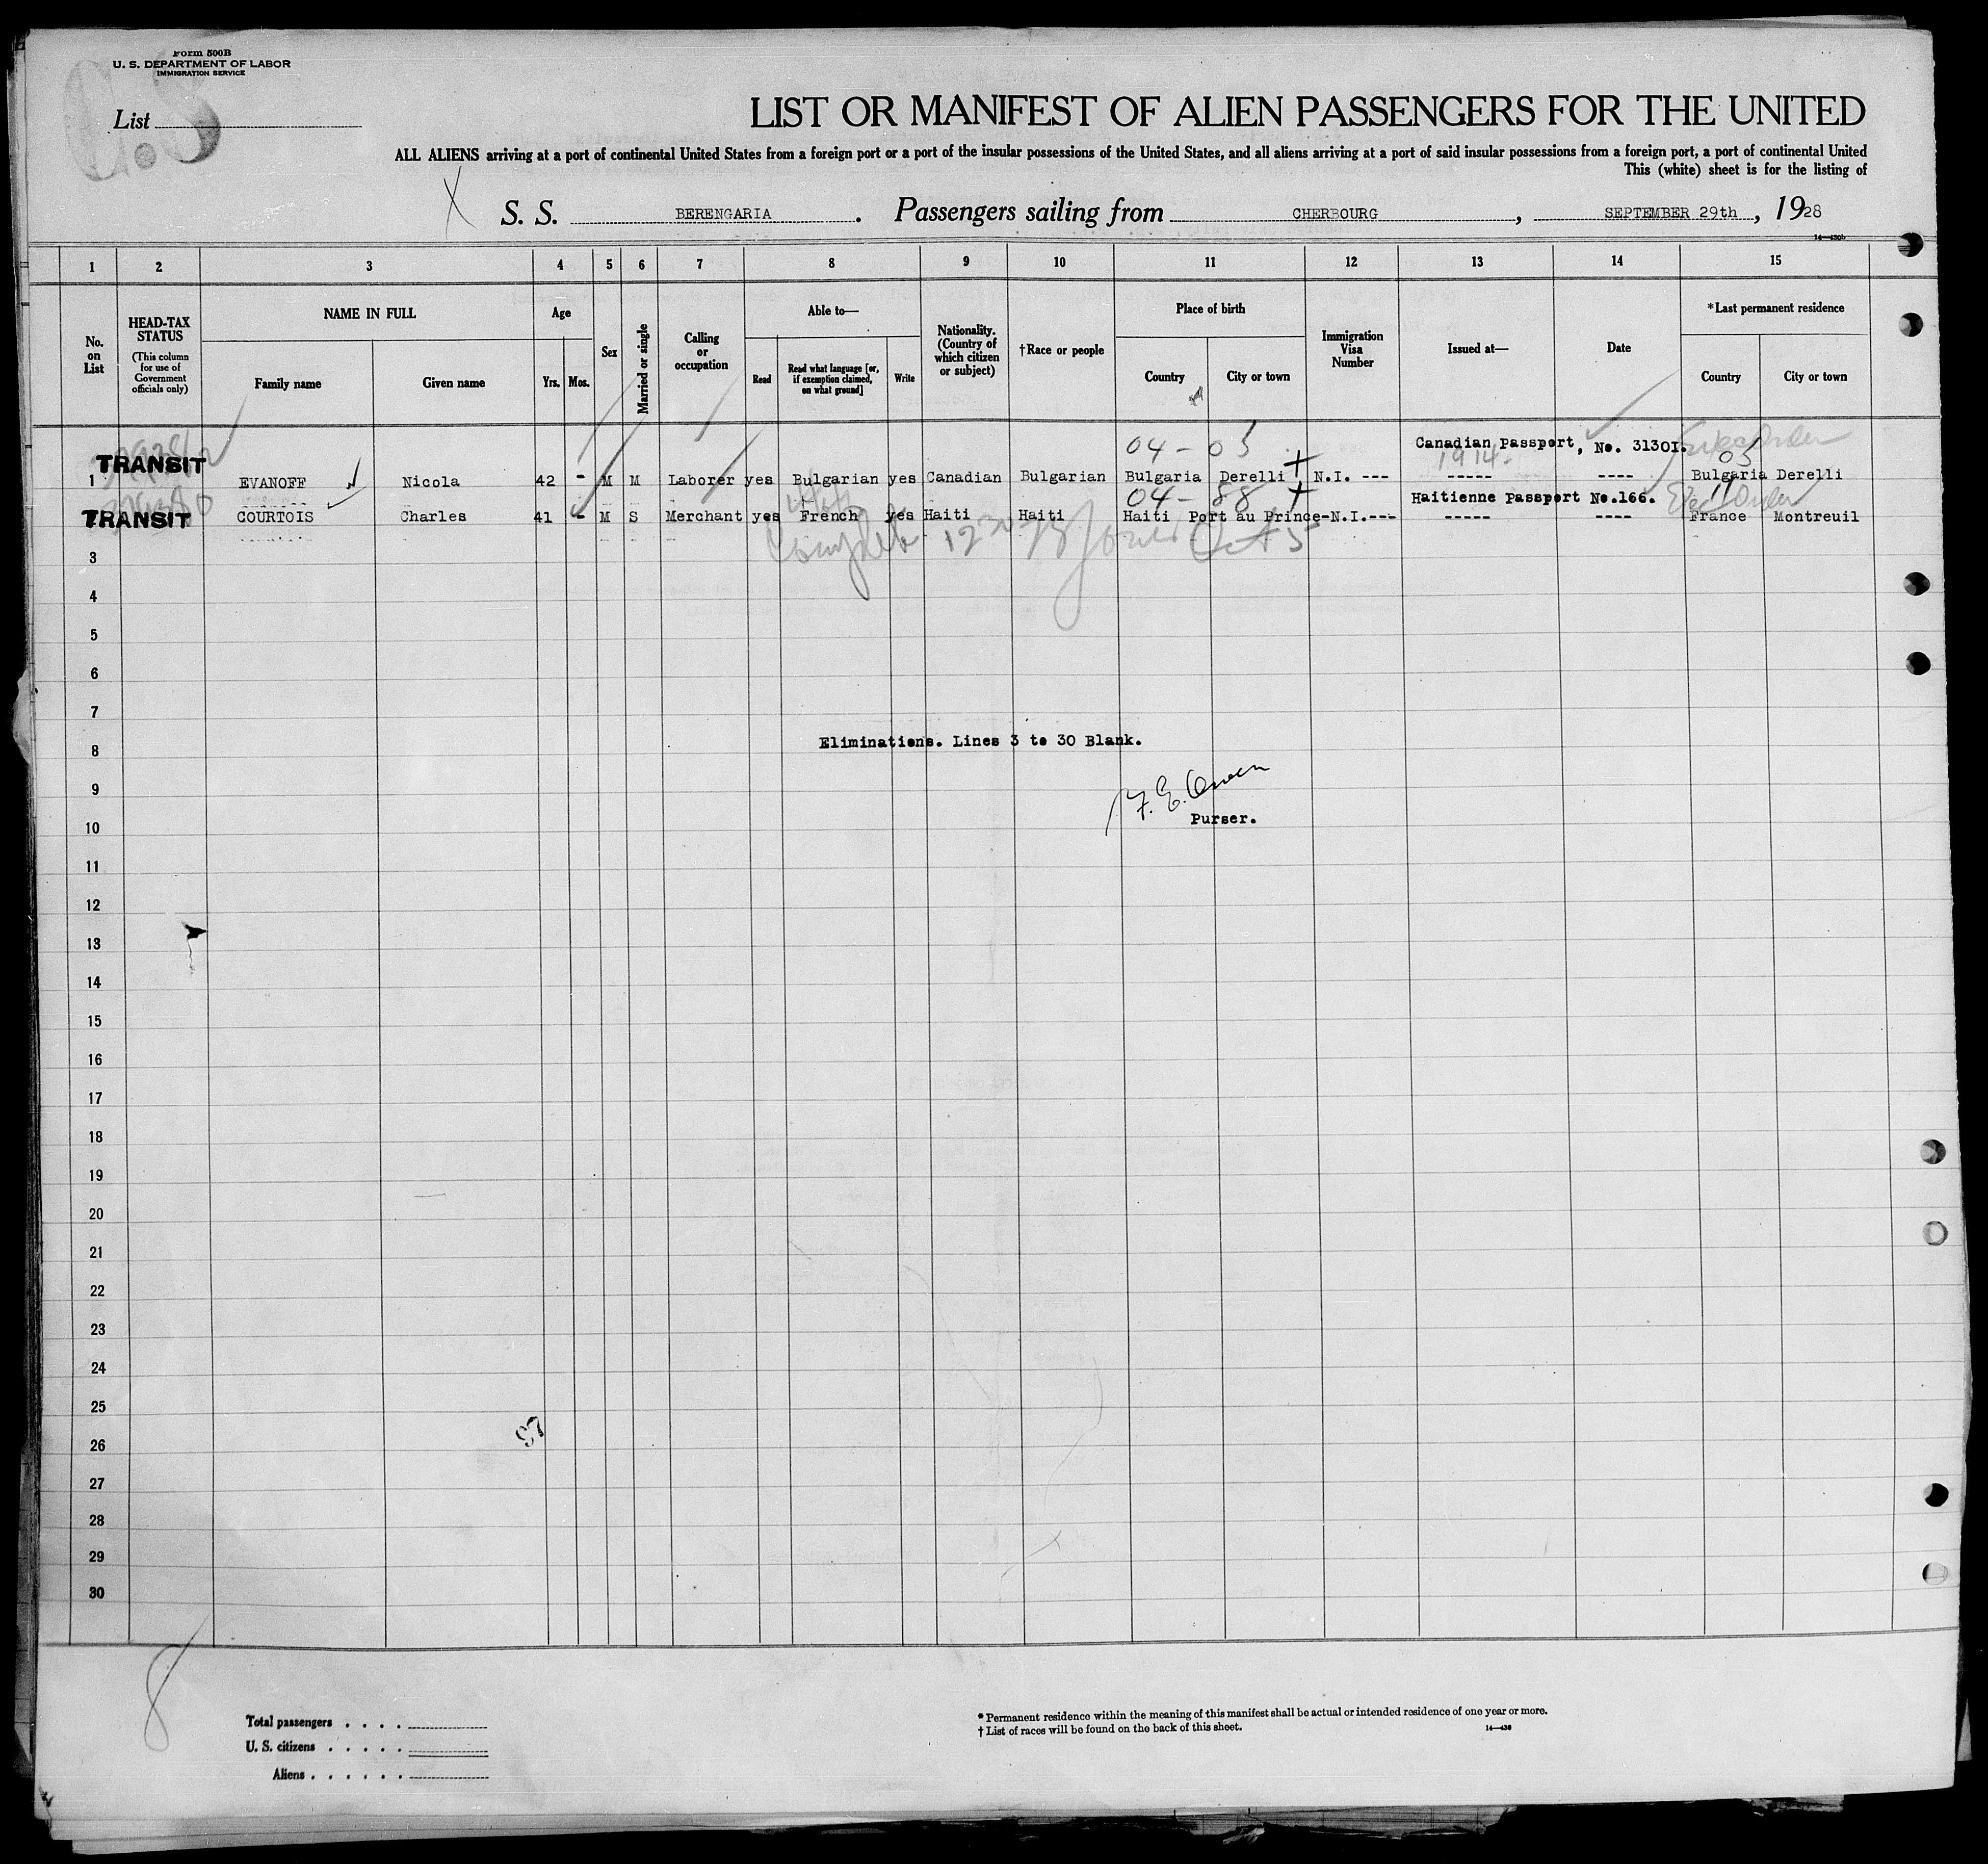 Form 500B
U. S. DEPARTMENT OF LABOR
IMMIGRATION SERVICE
List
LIST OR MANIFEST OF ALIEN PASSENGERS FOR THE UNITED
ALL ALIENS arriving at a port of continental United States from a foreign port or a port of the insular possessions of the United States, and all aliens arriving at a port of said insular possessions from a foreign port, a port of continental United
This (white) sheet is for the listing of
S. S. BERENGARIA. Passengers sailing from CHERBOURG, SEPTEMBER 29th, 1928
14—430b
1 2 3 4 5 6 7 8 9 10 11 12 13 14 15
No. on List
HEAD-TAX STATUS
(This column for use of Government officials only)
NAME IN FULL
Family name Given name
Age
Yrs. Mos.
Sex
Married or single
Calling or occupation
Able to—
Read
Read what language [or, if exemption claimed, on what ground]
Write
Nationality. (Country of which citizen or subject)
†Race or people
Place of birth
Country City or town
Immigration Visa Number
Issued at—
Date
*Last permanent residence
Country City or town
04 - 03 Canadian Passport, No. 31301.
1914. 03
TRANSIT
1 EVANOFF Nicola 42 - M M Laborer yes Bulgarian yes Canadian Bulgarian Bulgaria Derelli N.I. --- ----- ---- Bulgaria Derelli
04 - 88 Haitienne Passport No.166. 11
TRANSIT COURTOIS Charles 41 - M S Merchant yes French yes Haiti Haiti Haiti Port au Prince-N.I.--- ----- ---- France Montreuil
Oct 5
3
4
5
6
7
8 Eliminations. Lines 3 to 30 Blank.
9
10 Purser.
11
12
13
14
15
16
17
18
19
20
21
22
23
24
25
97
26
27
28
29
30
8
Total passengers . . . .
U. S. citizens . . . . .
Aliens . . . . . .
* Permanent residence within the meaning of this manifest shall be actual or intended residence of one year or more.
† List of races will be found on the back of this sheet. 14—430